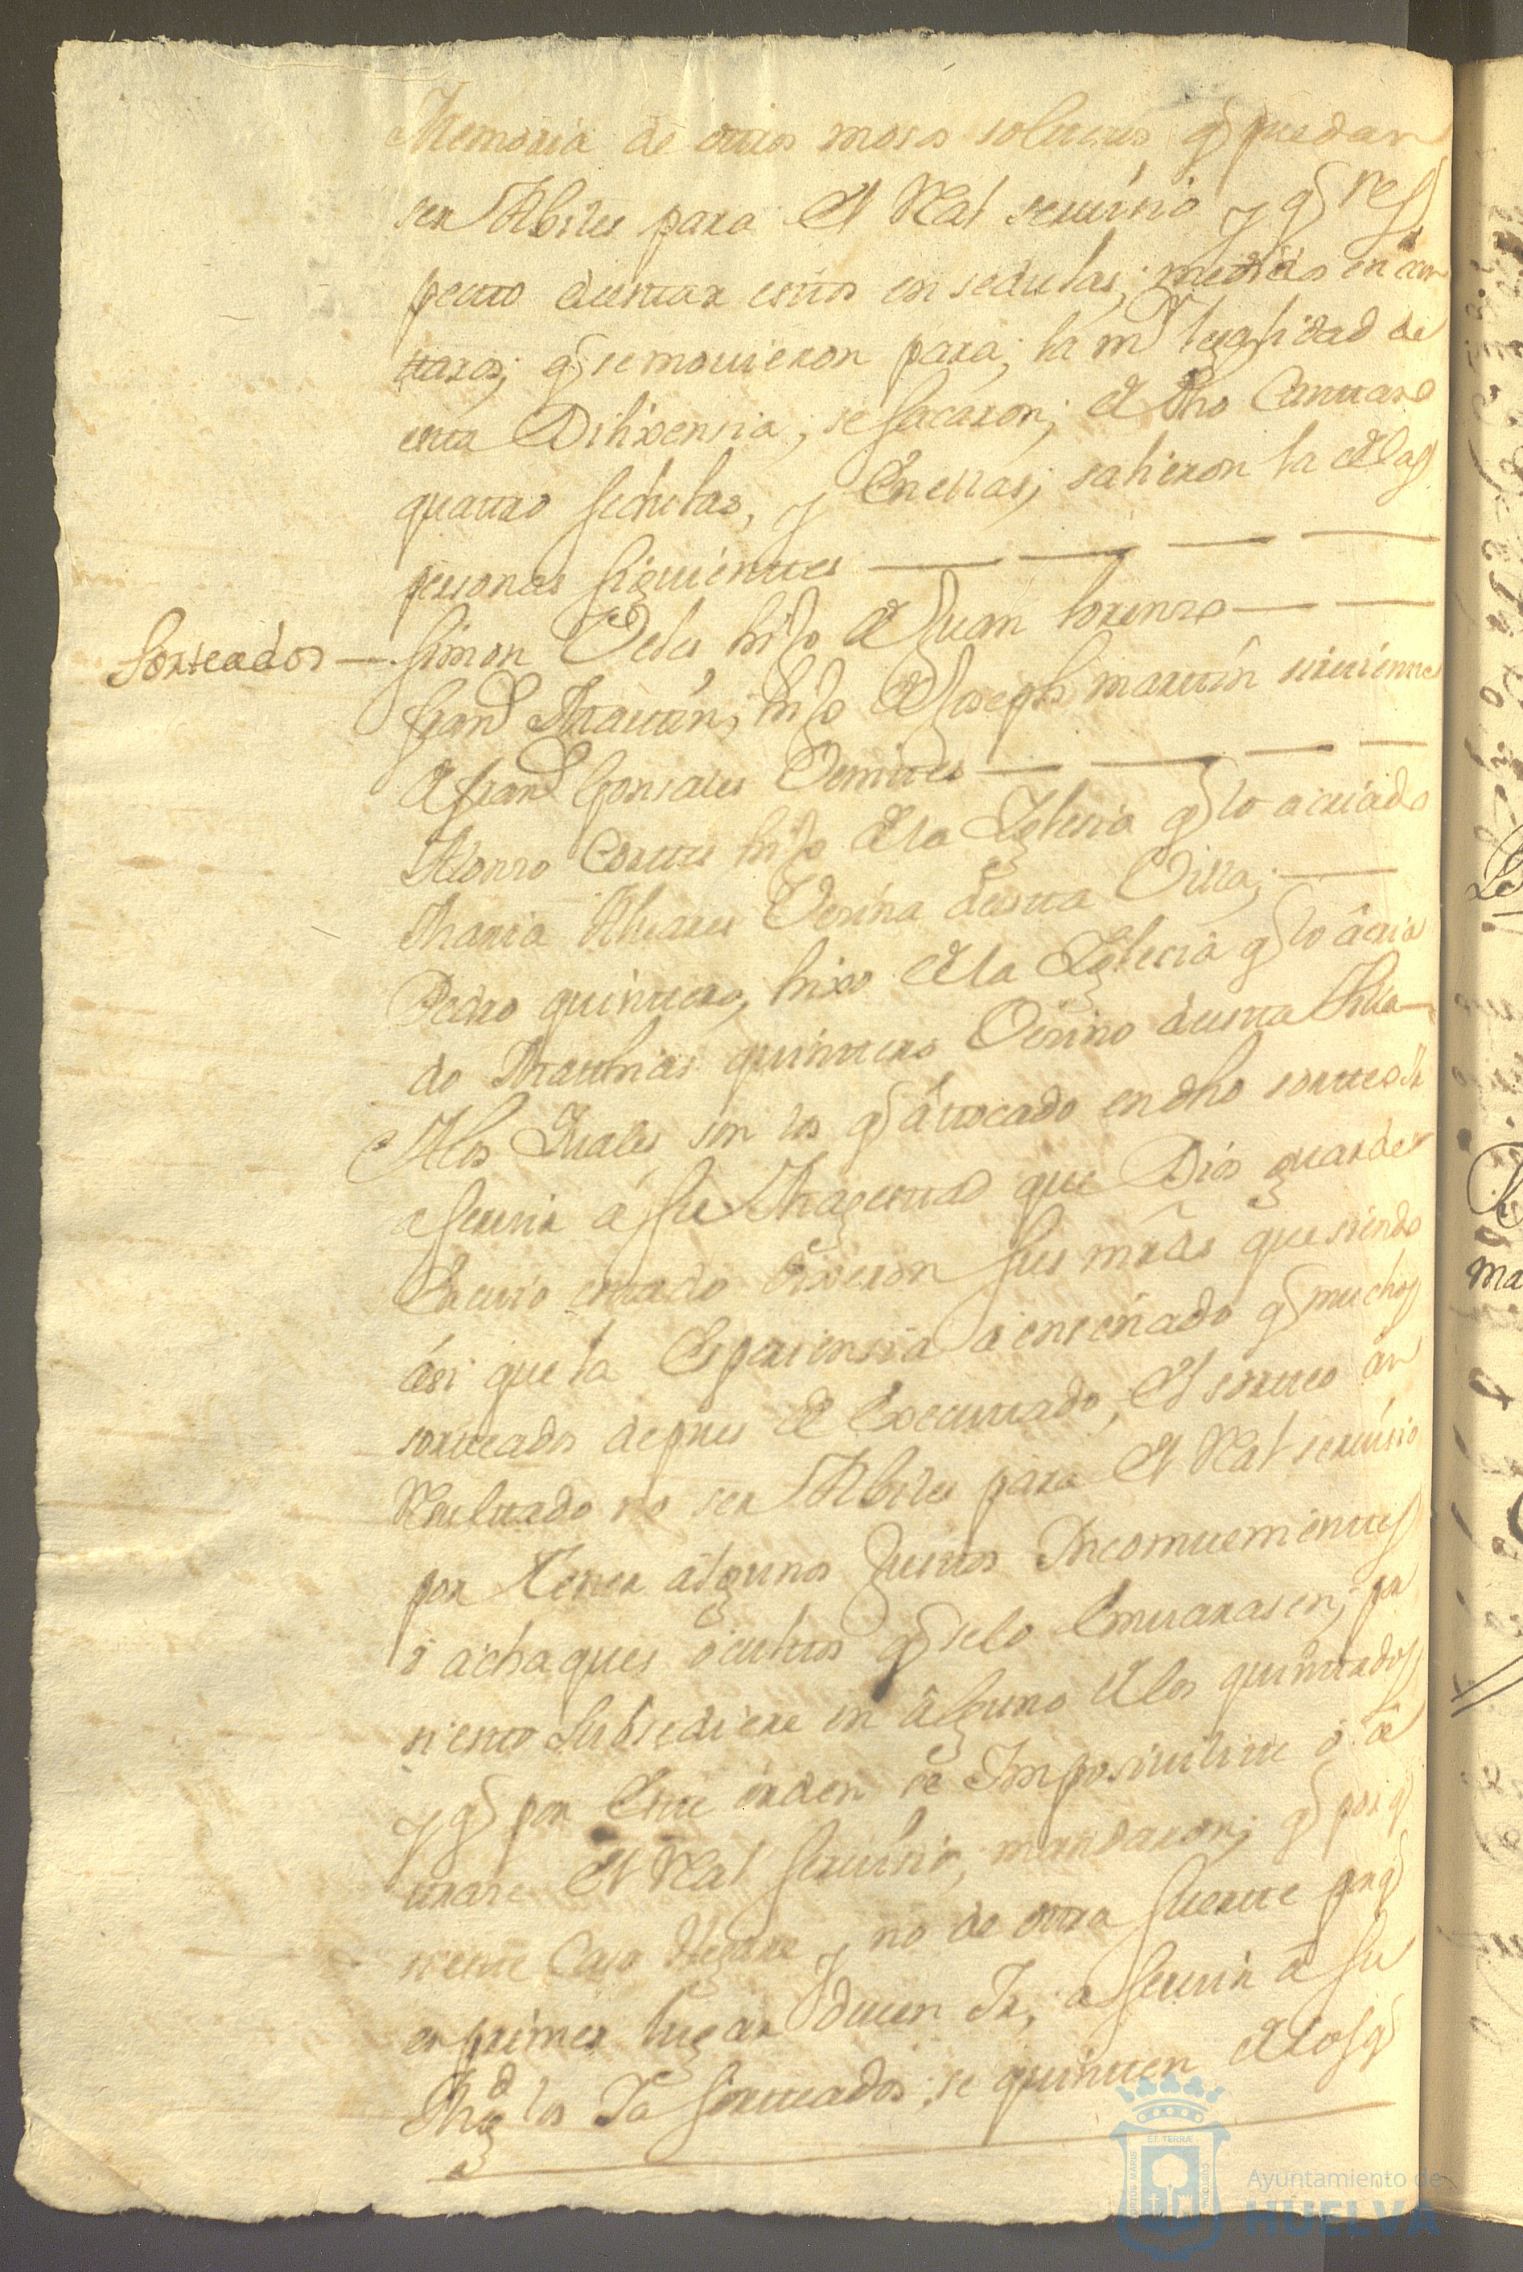 Memoria de otros mosos solteros q puedan
ser Abiles para el Rl servisio y q res
pecto destar estos en sedulas; metidas en can
taros; q se movieron para; la mr legalidad de
esta Dilixensia, se sacaron; de dho Cantaro
quatro sedulas, y En ellas; salieron la de las
personas siguientes
Sorteados — Simon Veles hijo de Juan Lorenso
Franco Martin; hijo de Joseph martin sirviente
de Franco Gonsales
Alonso Cortes hijo de la Iglesia q lo a criado
Maria Alvares Vesina desta Villa;
Pedro quintero, hixo de la Iglesia q lo â cria
do Mathias quintero Vesino desta Villa
A los Quales son los q â tocado en dho sorteo Ir
a servir á su Magestad que Dios guarde
En cuio estado Dixeron sus mrds que siendo
ási que la Esperiensia a enseñado q muchos
sorteados depues de Executado, el sorteo án
Resultado no ser Abiles para el Rl servisio
por Tener algunos Justos Incomvenientes
ó achaques ócultos q se lo Embarasen; pr
si esto Subsediere en âlguno de los quintados
y q por Este órden se Imposivilite ó â
trase el Rl servisio, mandaron; q por q
si este Caso llegare y no de otra suerte pa q
en primer lugar Ir; a servir â su
Magd los Ya sorteados; se quinten de los q
Ayuntamiento de
HUELVA